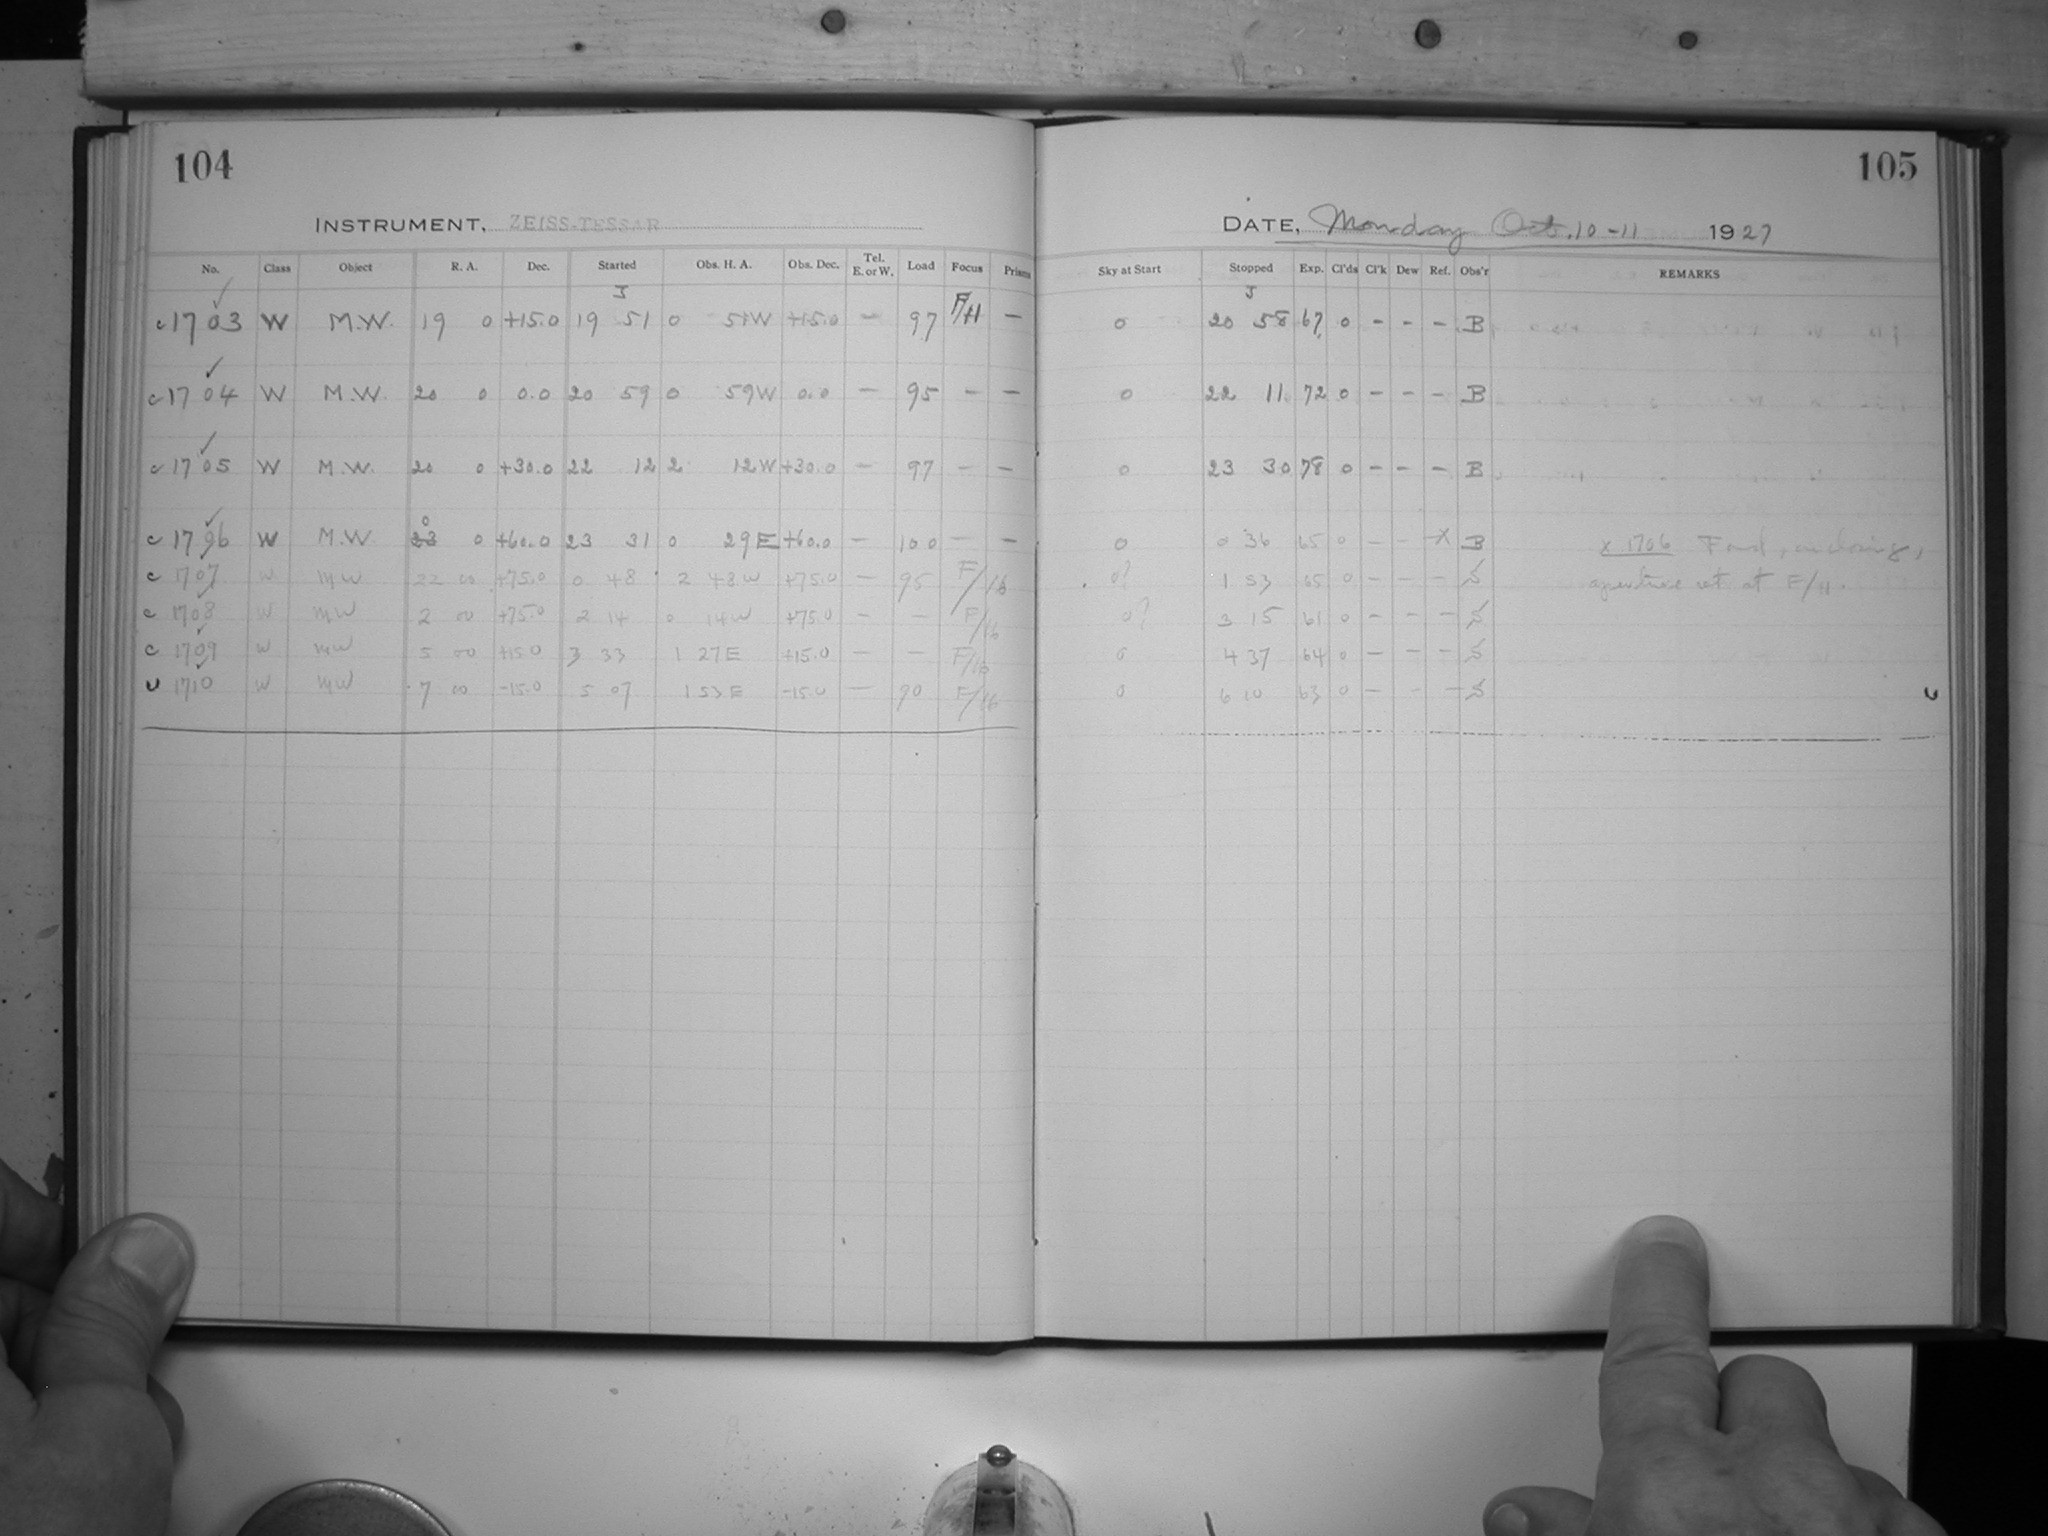 104
INSTRUMENT, ZEISS-TESSAR
No. Class Object R. A. Dec. Started Obs. H. A. Obs. Dec. Tel. E. or W. Load Focus Prisms
J
c 1703 W M.W. 19 0 +15.0 19 51 0 51W +15.0 — 97 —
c 1704 W M.W. 20 0 0.0 20 59 0 59W 0.0 — 95 — —
c 1705 W M.W. 20 0 +30.0 22 12 2 12W +30.0 — 97 — —
c 1706 W M.W. 0 0 +60.0 23 31 0 29E +60.0 — 100 — —
c 1707 W MW 22 00 +75.0 0 48 2 48W +75.0 — 95 F/16
c 1708 W MW 2 00 +75.0 2 14 0 14W +75.0 — — F/16
c 1709 W MW 5 00 +15.0 3 33 1 27E +15.0 — — F/16
1710 W MW 7 00 -15.0 5 07 1 53E -15.0 — 90 F/16
105
DATE, Monday Oct. 10-11 1927
Sky at Start Stopped Exp. Cl'ds Cl'k Dew Ref. Obs'r REMARKS
J
0 20 58 67 0 - - - B
0 22 11 72 0 - - - B
0 23 30 78 0 - - - B
0 0 36 65 0 - - X B x 1706 Found, on closing,
0? 1 53 65 0 - - - S aperture set at F/11.
0? 3 15 61 0 - - - S
0 4 37 64 0 - - - S
0 6 10 63 0 - - - S